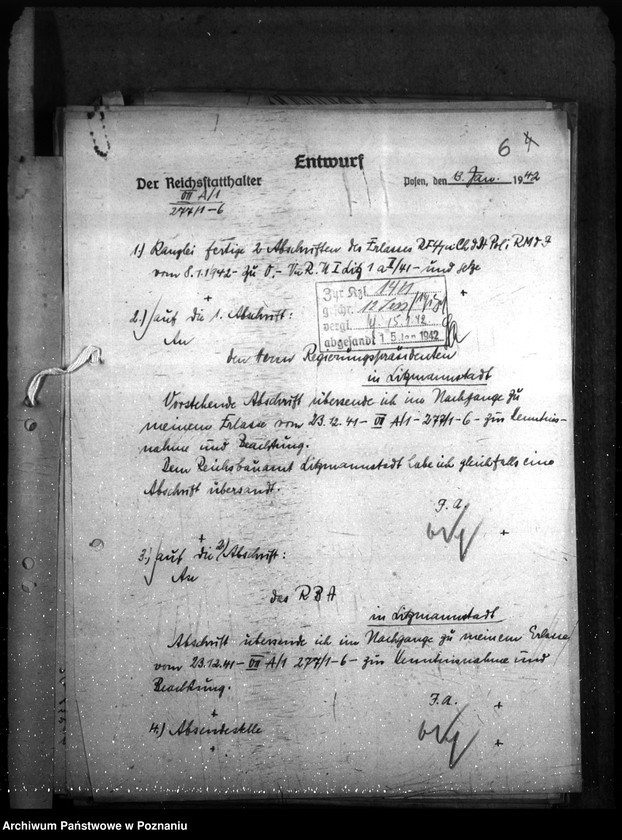 6
Entwurf
Der Reichsstatthalter
Posen, den 13. Jan. 1942
VII A/1
277/1-6
1.) Kanzlei fertige 2 Abschriften des Erlasses RFSSuChdDtPol i RMdI
vom 8.1.1942 - zu O,- Vu R. II I Litz 1 a /41 - und setze
Zur Kzl. 14/1
geschr.
vergl. 15.1.42
abgesandt 15. Jan. 1942
2.) auf die 1. Abschrift:
An
den Herrn Regierungspräsidenten
in Litzmannstadt
Vorstehende Abschrift übersende ich im Nachgange zu
meinem Erlasse vom 23.12.41 - VII A/1 - 277/1-6 - zur Kenntnis-
nahme und Beachtung.
Dem Reichsbauamt Litzmannstadt habe ich gleichfalls eine
Abschrift übersandt.
J. A.
3.) auf die 2. Abschrift:
An
das RBA
in Litzmannstadt
Abschrift übersende ich im Nachgange zu meinem Erlasse
vom 23.12.41 - VII A/1 277/1-6 - zur Kenntnisnahme und
Beachtung.
J. A.
4.) Absendestelle
Archiwum Państwowe w Poznaniu